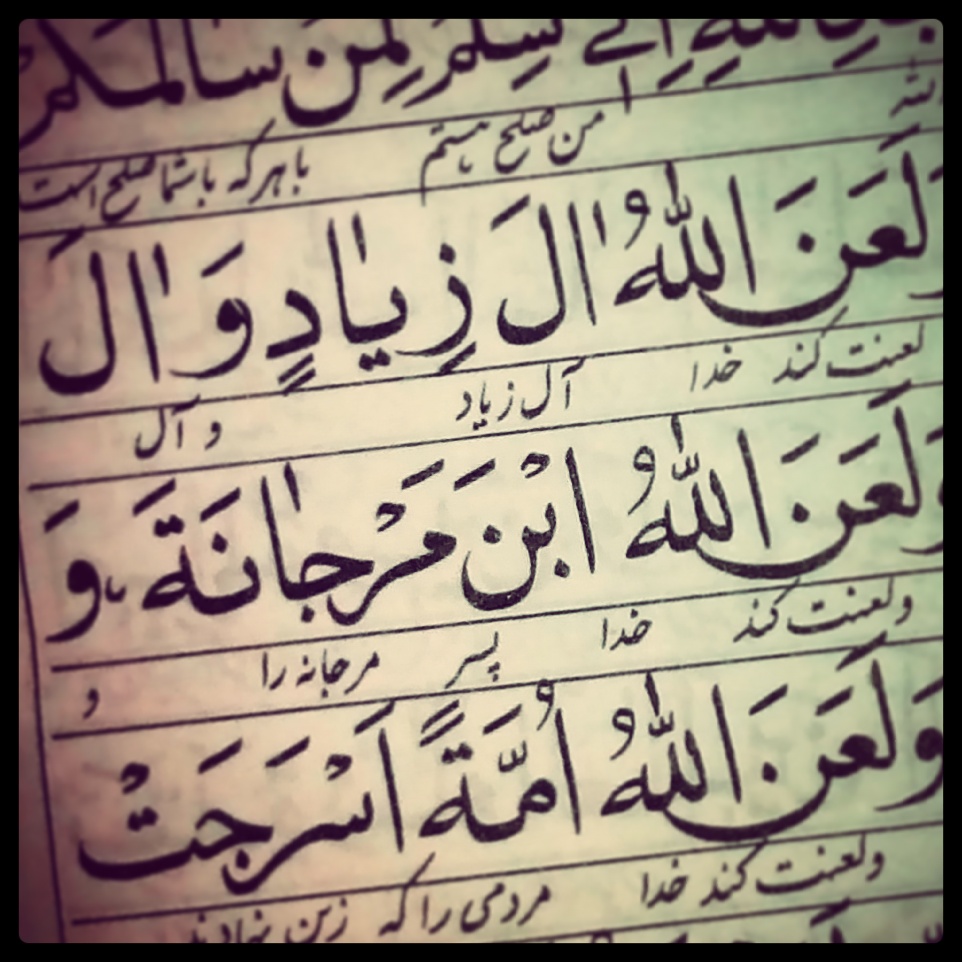 اِنّی سِلْمٌ لِمَنْ سالَمَکُمْ
من صلح هستم باهرکه باشما صلح است
وَلَعَنَ اللّٰهُ اٰلَ زِیٰادٍ وَاٰلَ
لعنت کند خدا آل زیاد و آل
وَلَعَنَ اللّٰهُ ابْنَ مَرْجٰانَةَ، وَ
ولعنت کند خدا پسر مرجانه را و
وَلَعَنَ اللّٰهُ اُمَّةً اَسْرَجَتْ
ولعنت کند خدا مردمی را که زین نهادند